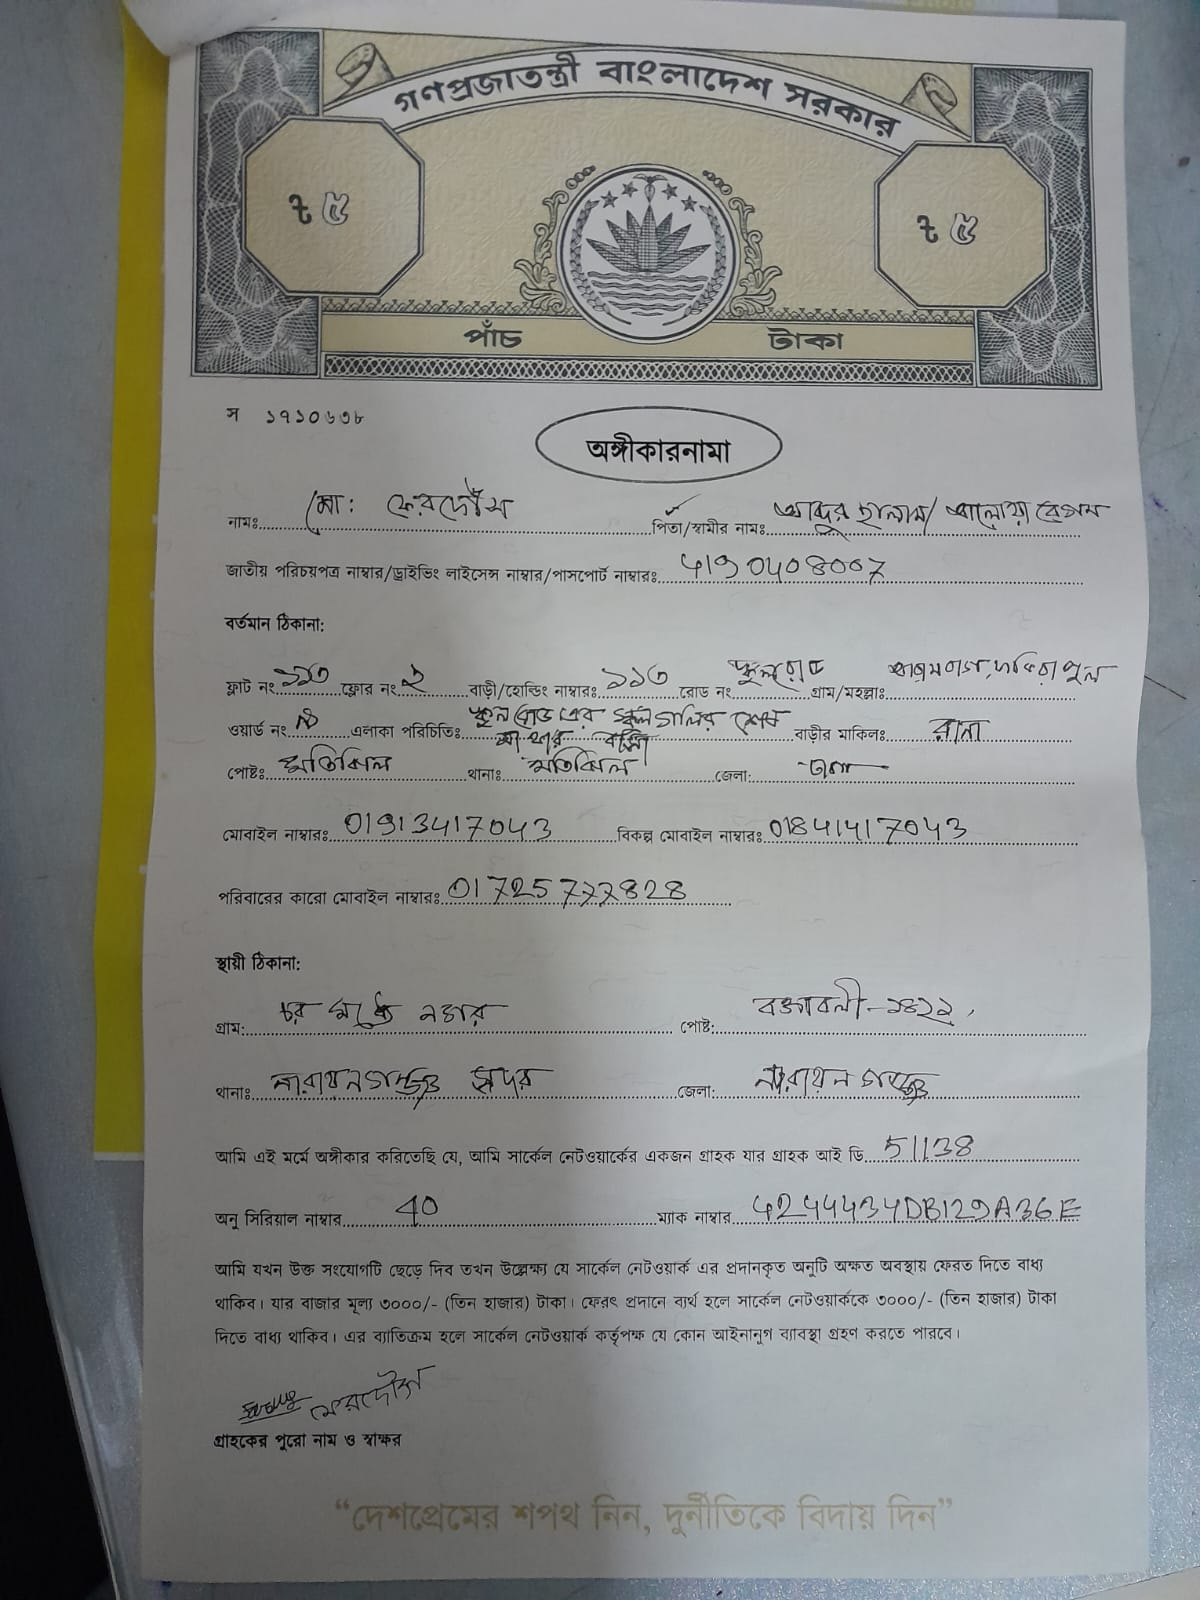 গণপ্রজাতন্ত্রী বাংলাদেশ সরকার
৳ ৫ ৳ ৫
পাঁচ টাকা
স ১৭১০৬৩৮
অঙ্গীকারনামা
নামঃ মো: ফেরদৌস পিতা/স্বামীর নামঃ
জাতীয় পরিচয়পত্র নাম্বার/ড্রাইভিং লাইসেন্স নাম্বার/পাসপোর্ট নাম্বারঃ
বর্তমান ঠিকানা:
ফ্লাট নং ১১৩ ফ্লোর নং ২ বাড়ী/হোল্ডিং নাম্বারঃ ১১৩ রোড নং গ্রাম/মহল্লাঃ
ওয়ার্ড নং এলাকা পরিচিতিঃ বাড়ীর মাকিলঃ রানা
পোষ্টঃ মতিঝিল থানাঃ মতিঝিল জেলা: ঢাকা
মোবাইল নাম্বারঃ 01913417043 বিকল্প মোবাইল নাম্বারঃ 01841417043
পরিবারের কারো মোবাইল নাম্বারঃ
স্থায়ী ঠিকানা:
গ্রাম: চর পোষ্ট: বক্তাবলী-১৪২১
থানাঃ নারায়নগঞ্জ সদর জেলা: নারায়নগঞ্জ
আমি এই মর্মে অঙ্গীকার করিতেছি যে, আমি সার্কেল নেটওয়ার্কের একজন গ্রাহক যার গ্রাহক আই ডি 51138
অনু সিরিয়াল নাম্বার 40 ম্যাক নাম্বার
আমি যখন উক্ত সংযোগটি ছেড়ে দিব তখন উল্লেক্ষ্য যে সার্কেল নেটওয়ার্ক এর প্রদানকৃত অনুটি অক্ষত অবস্থায় ফেরত দিতে বাধ্য
থাকিব। যার বাজার মূল্য ৩০০০/- (তিন হাজার) টাকা। ফেরৎ প্রদানে ব্যর্থ হলে সার্কেল নেটওয়ার্ককে ৩০০০/- (তিন হাজার) টাকা
দিতে বাধ্য থাকিব। এর ব্যাতিক্রম হলে সার্কেল নেটওয়ার্ক কর্তৃপক্ষ যে কোন আইনানুগ ব্যাবস্থা গ্রহণ করতে পারবে।
ফেরদৌস
গ্রাহকের পুরো নাম ও স্বাক্ষর
“দেশপ্রেমের শপথ নিন, দুর্নীতিকে বিদায় দিন”